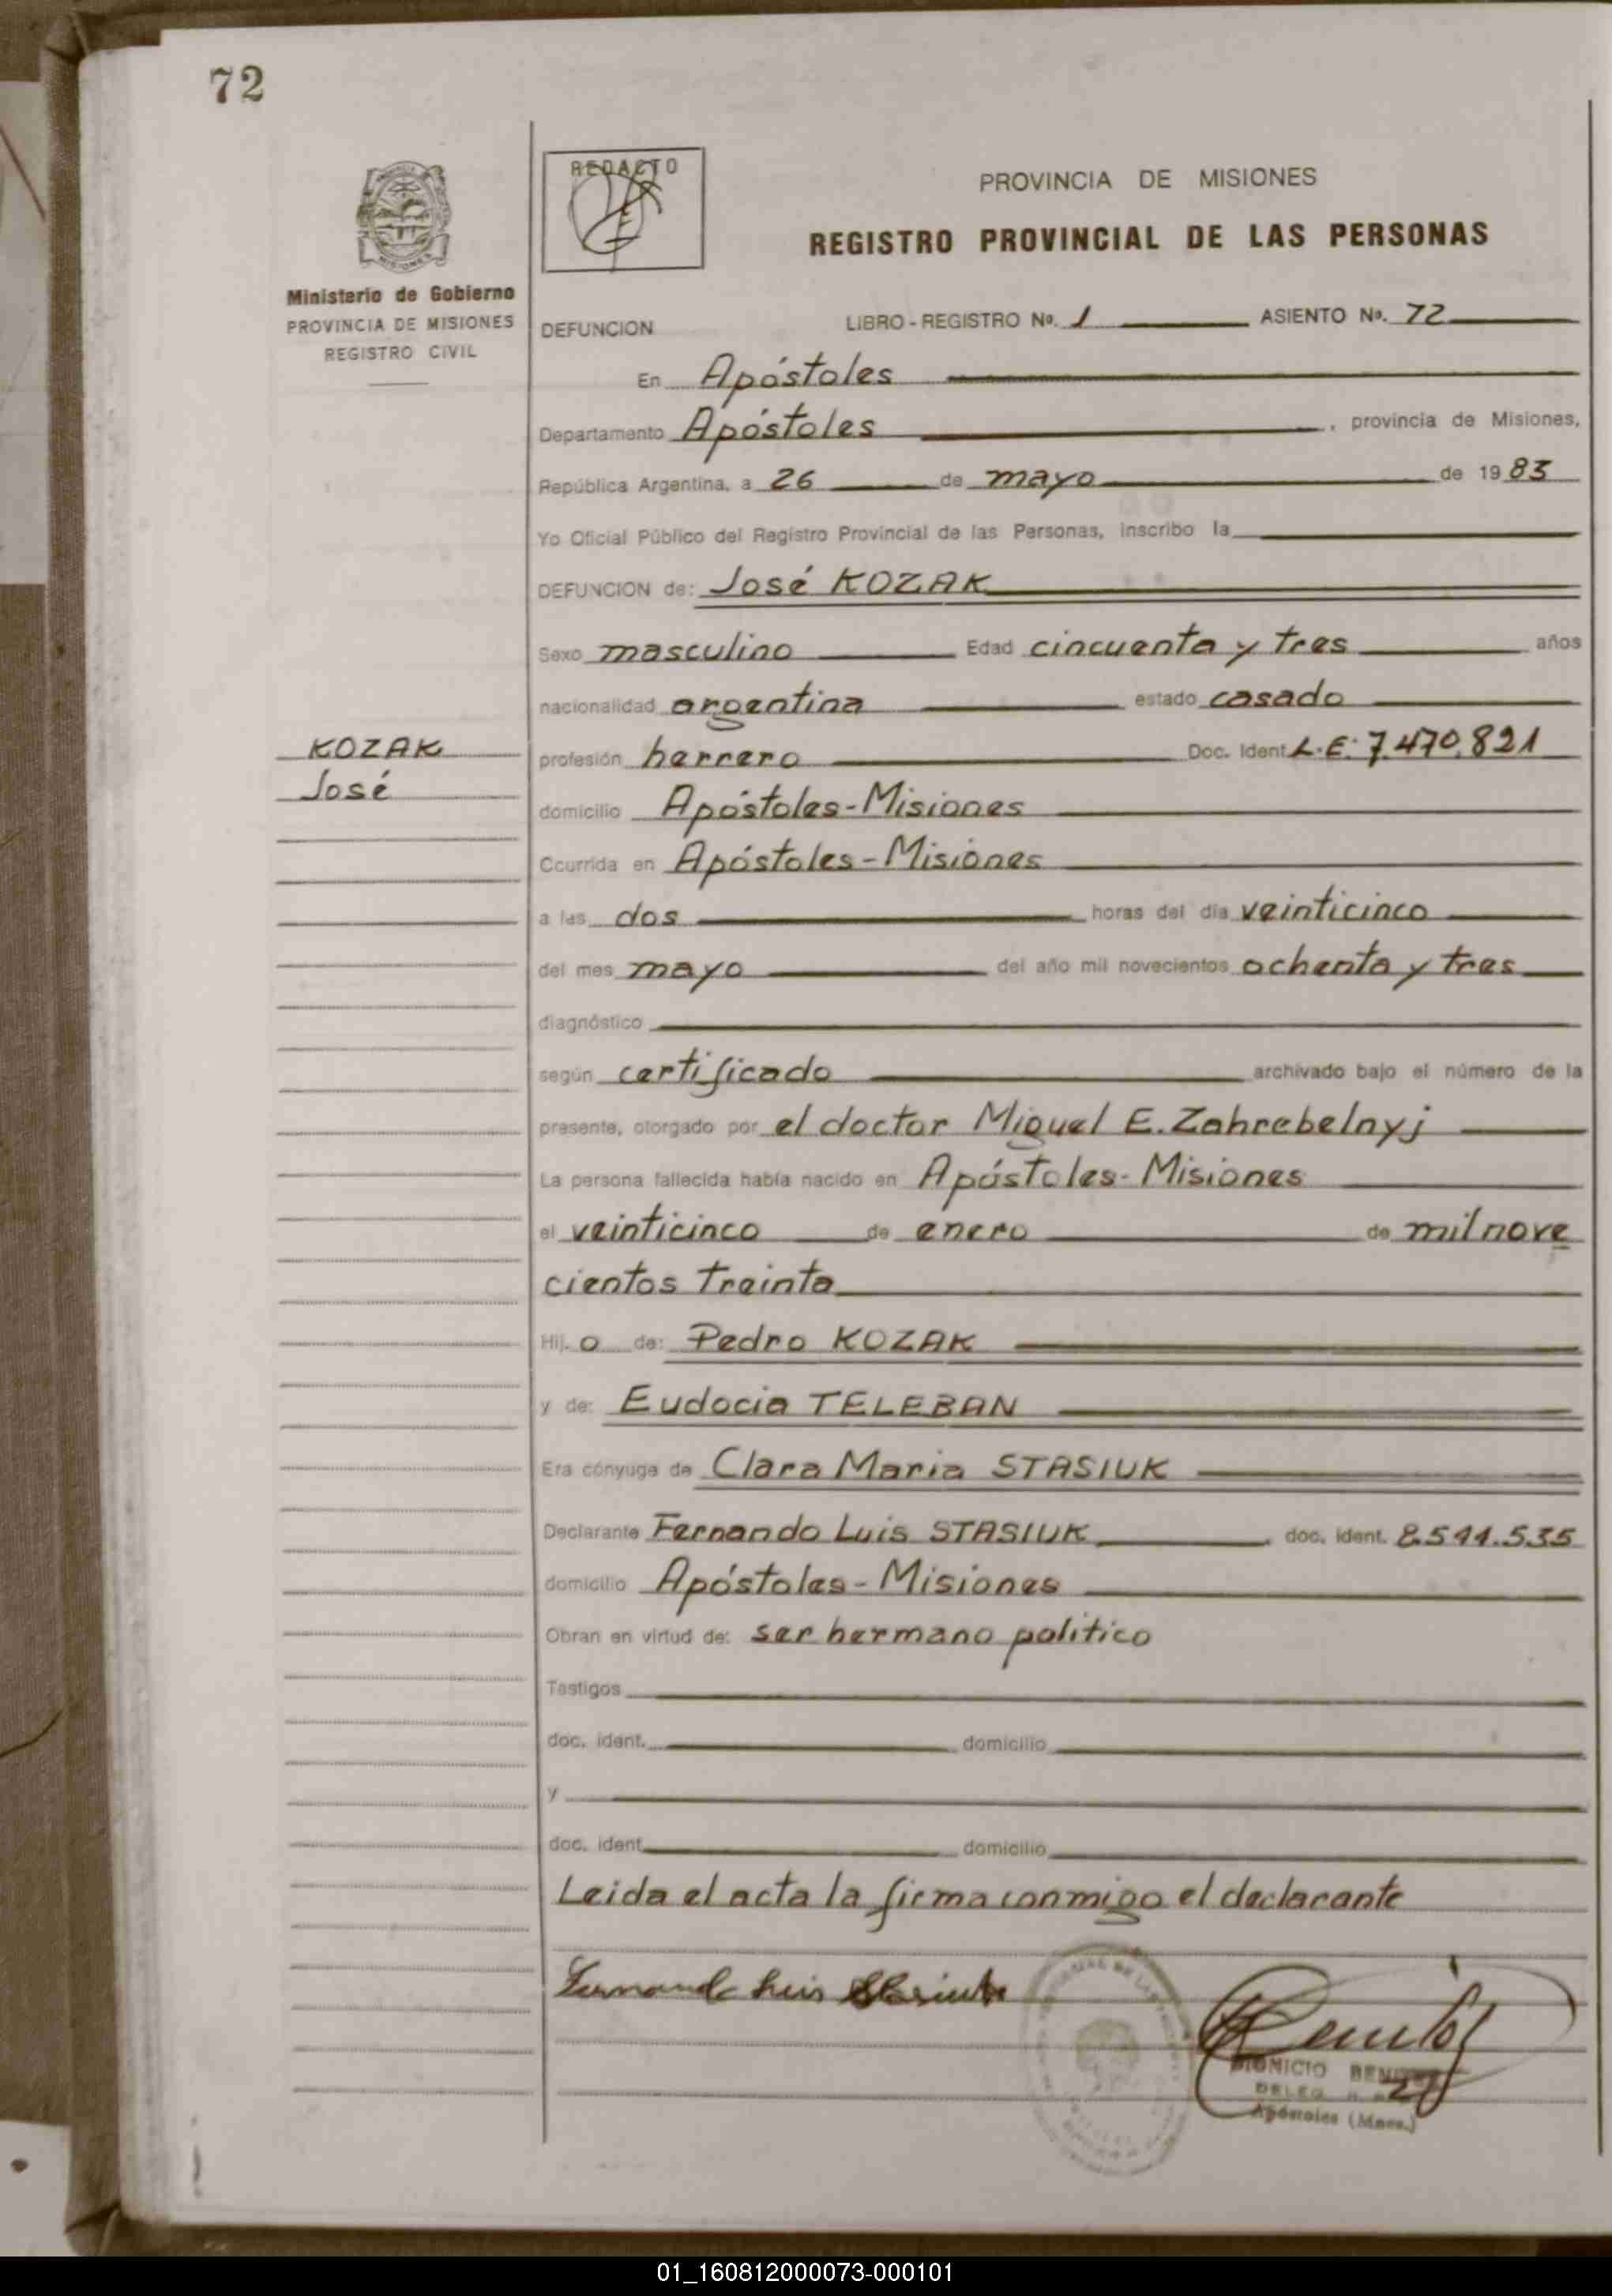 72
REDACTO
PROVINCIA DE MISIONES
REGISTRO PROVINCIAL DE LAS PERSONAS
MISIONES
Ministerio de Gobierno
PROVINCIA DE MISIONES
REGISTRO CIVIL
DEFUNCION LIBRO - REGISTRO Nº. 1 ASIENTO Nº. 72
En Apóstoles
Departamento Apóstoles , provincia de Misiones,
República Argentina, a 26 de mayo de 1983
Yo Oficial Público del Registro Provincial de las Personas, inscribo la
DEFUNCION de: José KOZAK
Sexo masculino Edad cincuenta y tres años
nacionalidad argentina estado casado
KOZAK
José
profesión herrero Doc. Ident L.E: 7.470.821
domicilio Apóstoles-Misiones
Ocurrida en Apóstoles-Misiones
a las dos horas del día veinticinco
del mes mayo del año mil novecientos ochenta y tres
diagnóstico
según certificado archivado bajo el número de la
presente, otorgado por el doctor Miguel E. Zahrebelnyj
La persona fallecida había nacido en Apóstoles-Misiones
el veinticinco de enero de mil nove
cientos treinta
Hij. o de: Pedro KOZAK
y de: Eudocia TELEBAN
Era cónyuge de Clara Maria STASIUK
Declarante Fernando Luis STASIUK doc. ident. 8.544.535
domicilio Apóstoles-Misiones
Obran en virtud de: ser hermano politico
Testigos
doc. ident. domicilio
y
doc. ident. domicilio
Leida el acta la firma conmigo el declarante
Fernando Luis Stasiuk
DIONICIO BENITEZ
DELEG
Apóstoles (Mnes.)
01_160812000073-000101